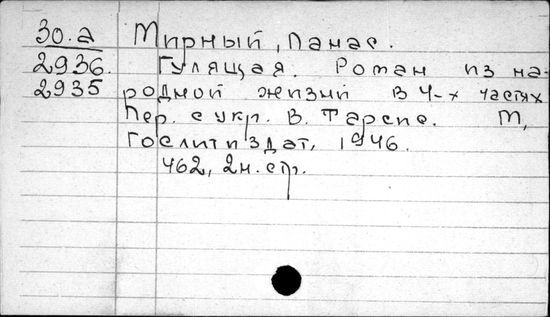 30.а Мирный, Панас.
2936. Гулящая. Роман из на-
2935 родной жизни в 4-х частях
Пер. с укр. В. Тарсис. М,
Гослитиздат, 1946.
462, 2н. стр.